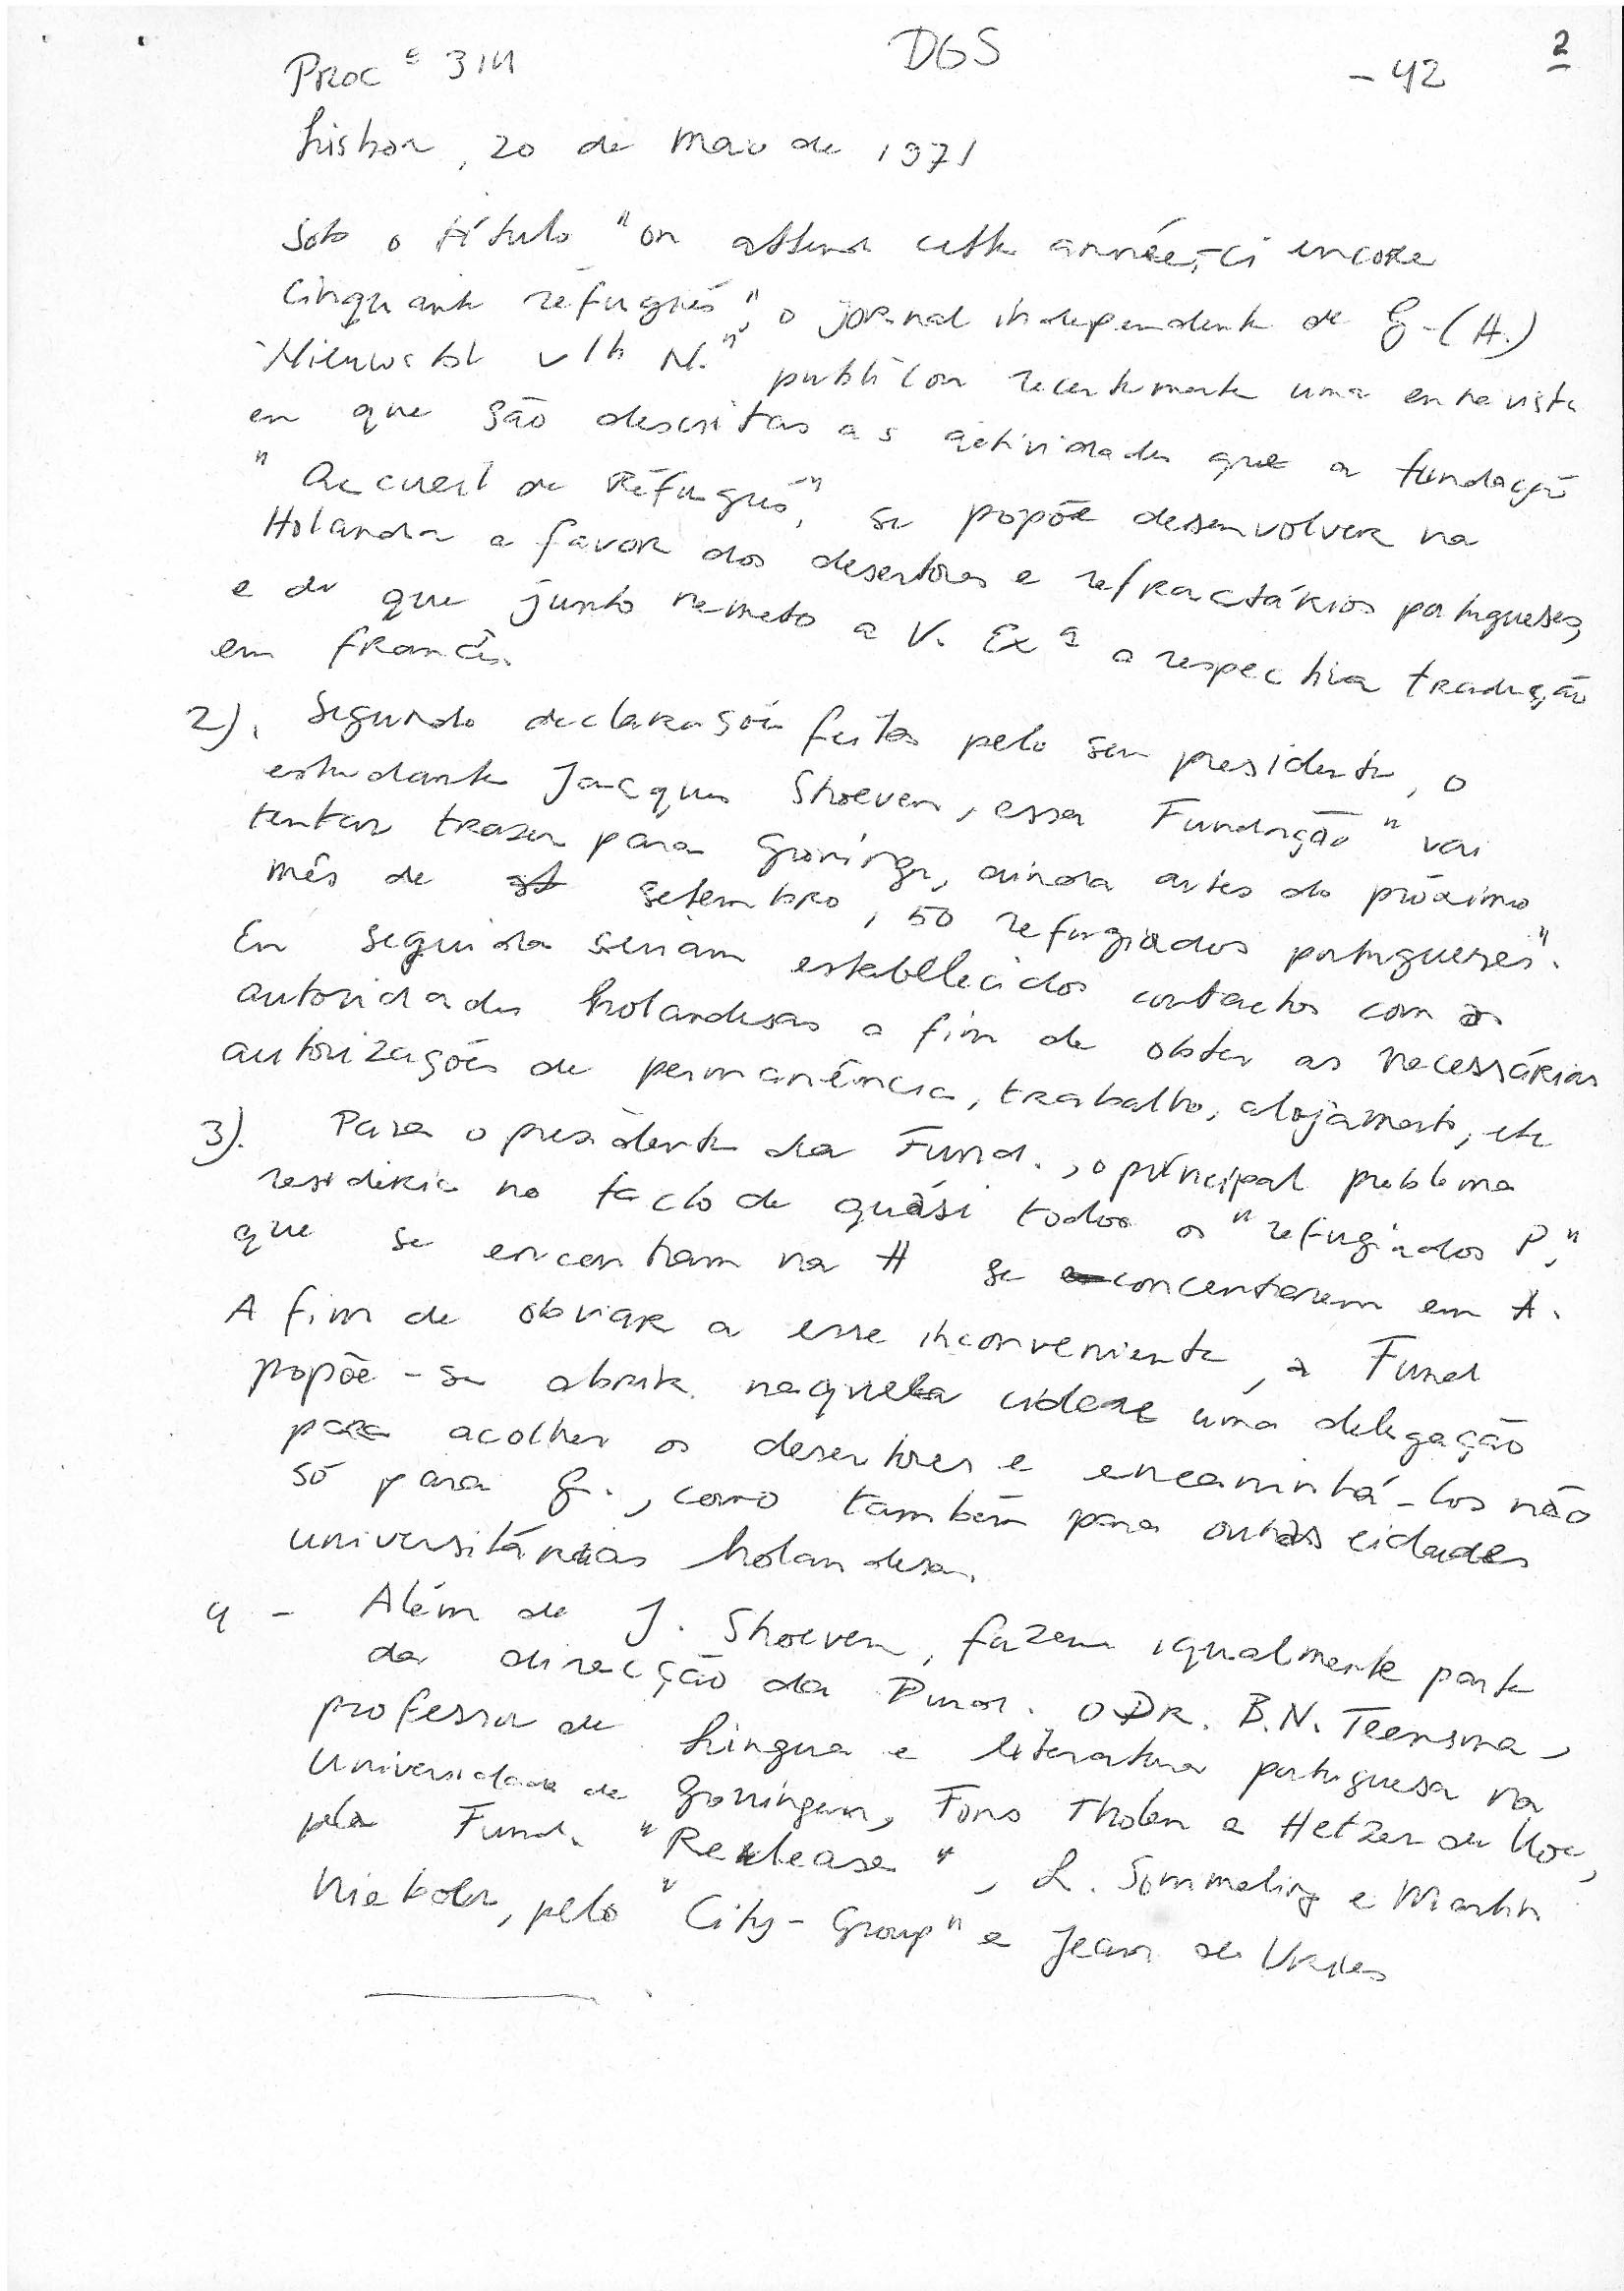 2
DGS
Proc º 314 - 42
Lisboa, 20 de maio de 1971
Sob o título "on attend cette année-ci encore
cinquante réfugiés", o jornal independente de G-(H.)
"Nieuwsbl v/h N." publicou recentemente uma entrevista
em que são descritas as actividades que a fundação
"Accueil de Réfugiés", se propõe desenvolver na
Holanda a favor dos desertores e refractários portugueses,
e de que junto remeto a V. Exª a respectiva tradução
em francês.
2). Segundo declarações feitas pelo seu presidente, o
estudante Jacques Stoeven, essa Fundação "vai
tentar trazer para Groninga, ainda antes do próximo
mês de setembro, 50 refugiados portugueses".
Em seguida seriam estabelecidos contactos com as
autoridades holandesas a fim de obter as necessárias
autorizações de permanência, trabalho, alojamento, etc
3). Para o presidente da Fund., o principal problema
residiria no facto de quási todos os "refugiados P."
que se encontram na H se concentrarem em A.
A fim de obviar a esse inconveniente, a Fund
propõe-se abrir naquela cidade uma delegação
para acolher os desertores e encaminhá-los não
só para G., como também para outras cidades
universitárias holandesas.
4 - Além de J. Stoeven, fazem igualmente parte
da direcção da Fund. o DR. B.N. Teensma,
professor de Língua e literatura portuguesa na
Universidade de Groningen, Fons Tholen e Hetzer de
pela Fund. "Release", L. Sommeling e Martin
pelo "City-Group" e Jean de Vries